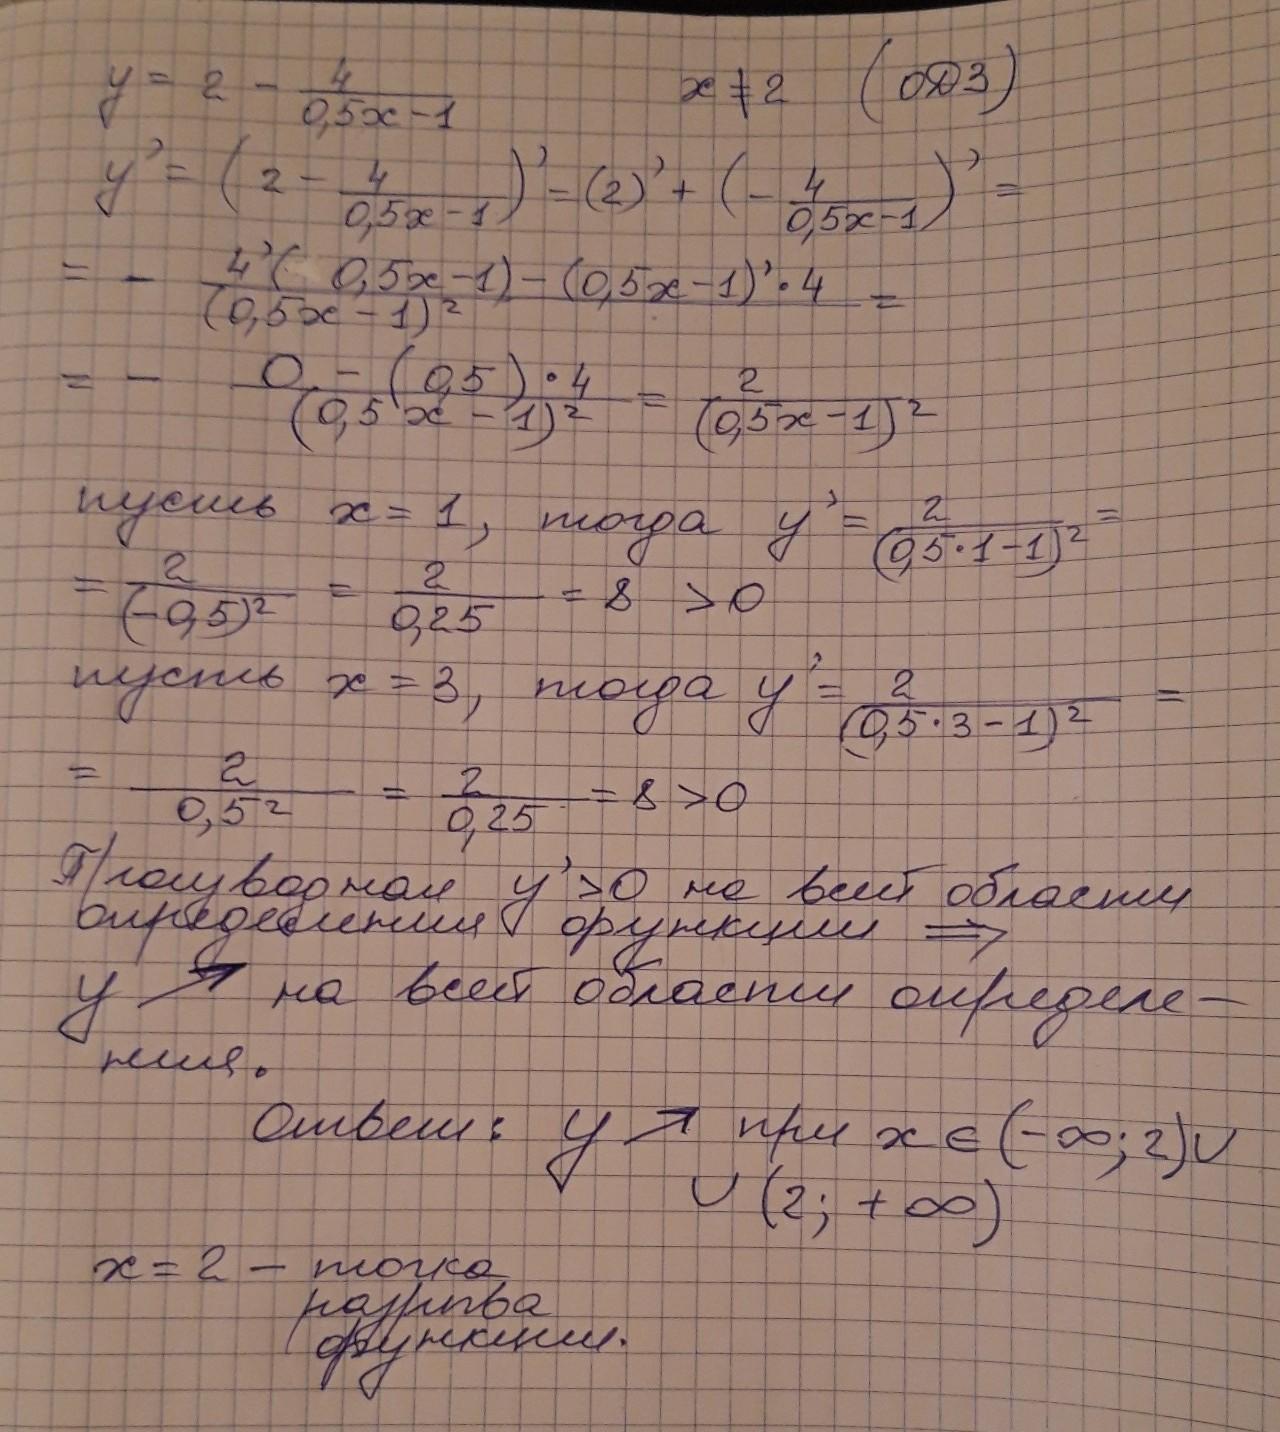 y = 2 - 4/(0,5x-1)   x ≠ 2   (ОДЗ)
y' = (2 - 4/(0,5x-1))' = (2)' + (- 4/(0,5x-1))' =
= - (4'(0,5x-1) - (0,5x-1)'·4)/(0,5x-1)² =
= - (0 - (0,5)·4)/(0,5x-1)² = 2/(0,5x-1)²
пусть x = 1, тогда y' = 2/(0,5·1-1)² =
= 2/(-0,5)² = 2/0,25 = 8 > 0
пусть x = 3, тогда y' = 2/(0,5·3-1)² =
= 2/0,5² = 2/0,25 = 8 > 0
Производная y' > 0 на всей области
определения функции ⇒
y ↗ на всей области определе-
ния.
Ответ: y ↗ при x ∈ (-∞; 2) ∪
∪ (2; +∞)
x = 2 - точка
разрыва
функции.